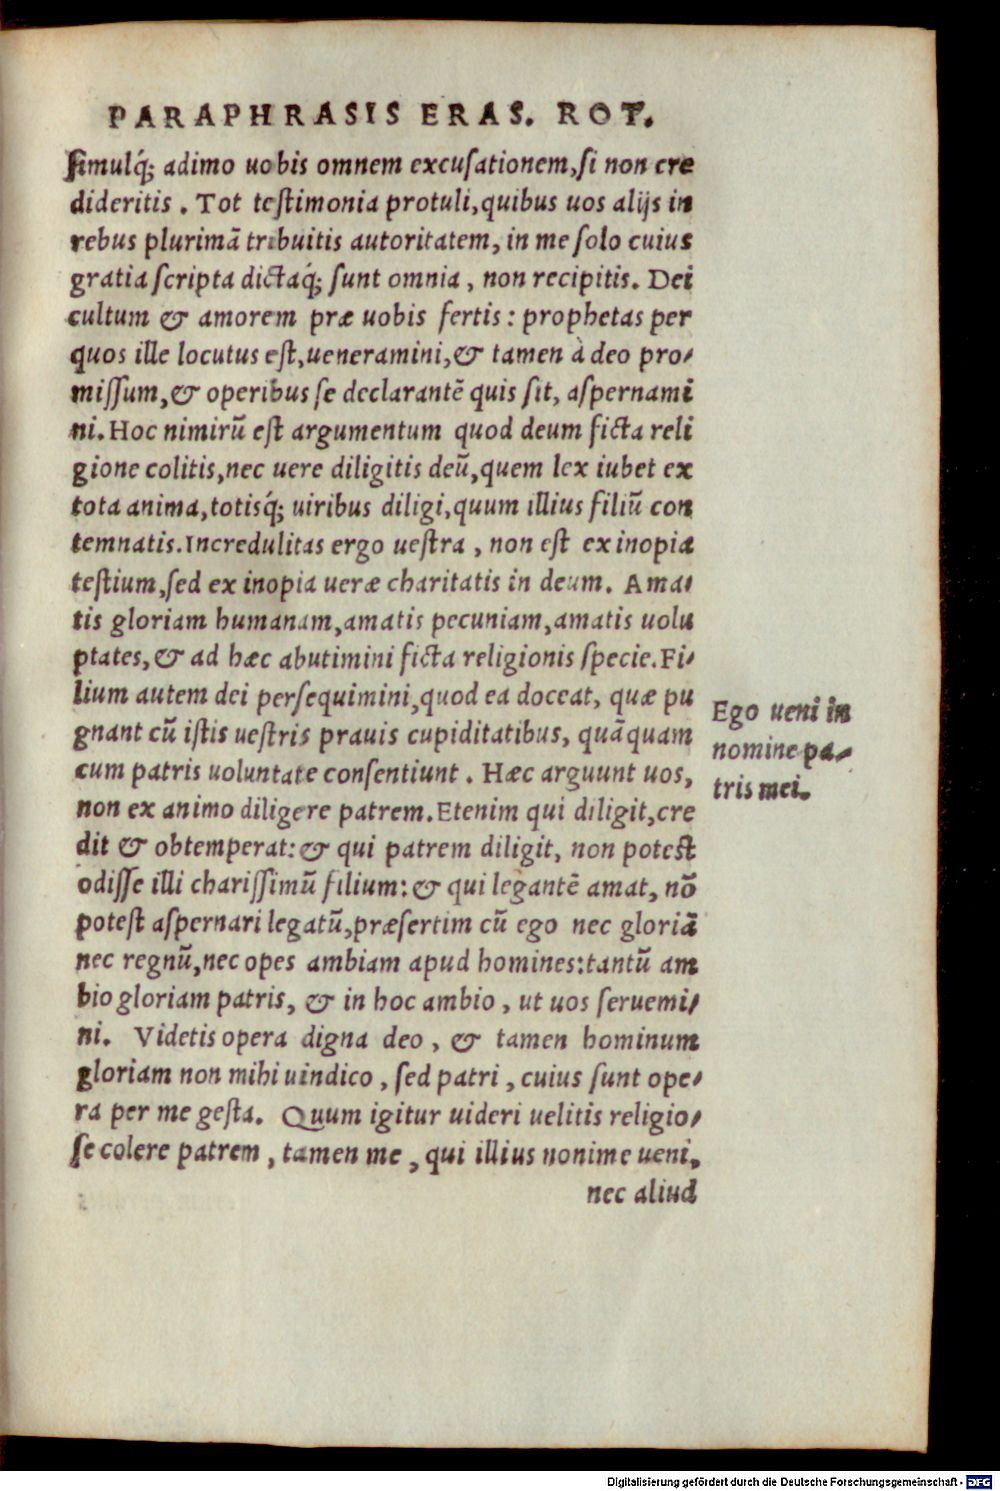 PARAPHRASIS ERAS. ROT.
ſimulq́; adimo uobis omnem excuſationem,ſi non cre
dideritis . Tot teſtimonia protuli,quibus uos alijs in
rebus plurimā tribuitis autoritatem, in me ſolo cuius
gratia ſcripta dictaq́; ſunt omnia , non recipitis. Dei
cultum & amorem præ uobis fertis : prophetas per
quos ille locutus eſt,ueneramini,& tamen à deo pro⸗
miſſum,& operibus ſe declarantē quis ſit, aſpernami
ni. Hoc nimirū eſt argumentum quod deum ficta reli
gione colitis,nec uere diligitis deū,quem lex iubet ex
tota anima,totisq́; uiribus diligi,quum illius filiū con
temnatis.Incredulitas ergo ueſtra , non eſt ex inopia
teſtium,ſed ex inopia ueræ charitatis in deum. Ama⸗
tis gloriam humanam,amatis pecuniam,amatis uolu
ptates,& ad hæc abutimini ficta religionis ſpecie.Fi⸗
lium autem dei perſequimini,quod ea doceat, quæ pu
gnant cū iſtis ueſtris prauis cupiditatibus, quāquam
cum patris uoluntate conſentiunt . Hæc arguunt uos,
non ex animo diligere patrem.Etenim qui diligit,cre
dit & obtemperat:& qui patrem diligit, non poteſt
odiſſe illi chariſſimū filium:& qui legantē amat, nō
poteſt aſpernari legatū,præſertim cū ego nec gloriā
nec regnū,nec opes ambiam apud homines:tantū am
bio gloriam patris, & in hoc ambio , ut uos ſeruemi⸗
ni. Videtis opera digna deo , & tamen hominum
gloriam non mihi uindico , ſed patri , cuius ſunt ope⸗
ra per me geſta. Quum igitur uideri uelitis religio⸗
ſe colere patrem , tamen me , qui illius nonime ueni,
nec aliud
Ego ueni in
nomine pa⸗
tris mei.
Digitalisierung gefördert durch die Deutsche Forschungsgemeinschaft - DFG